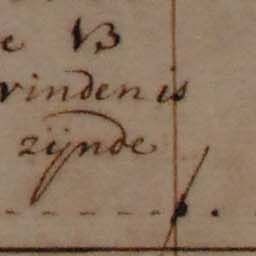 e VB
vinden is
zijnde